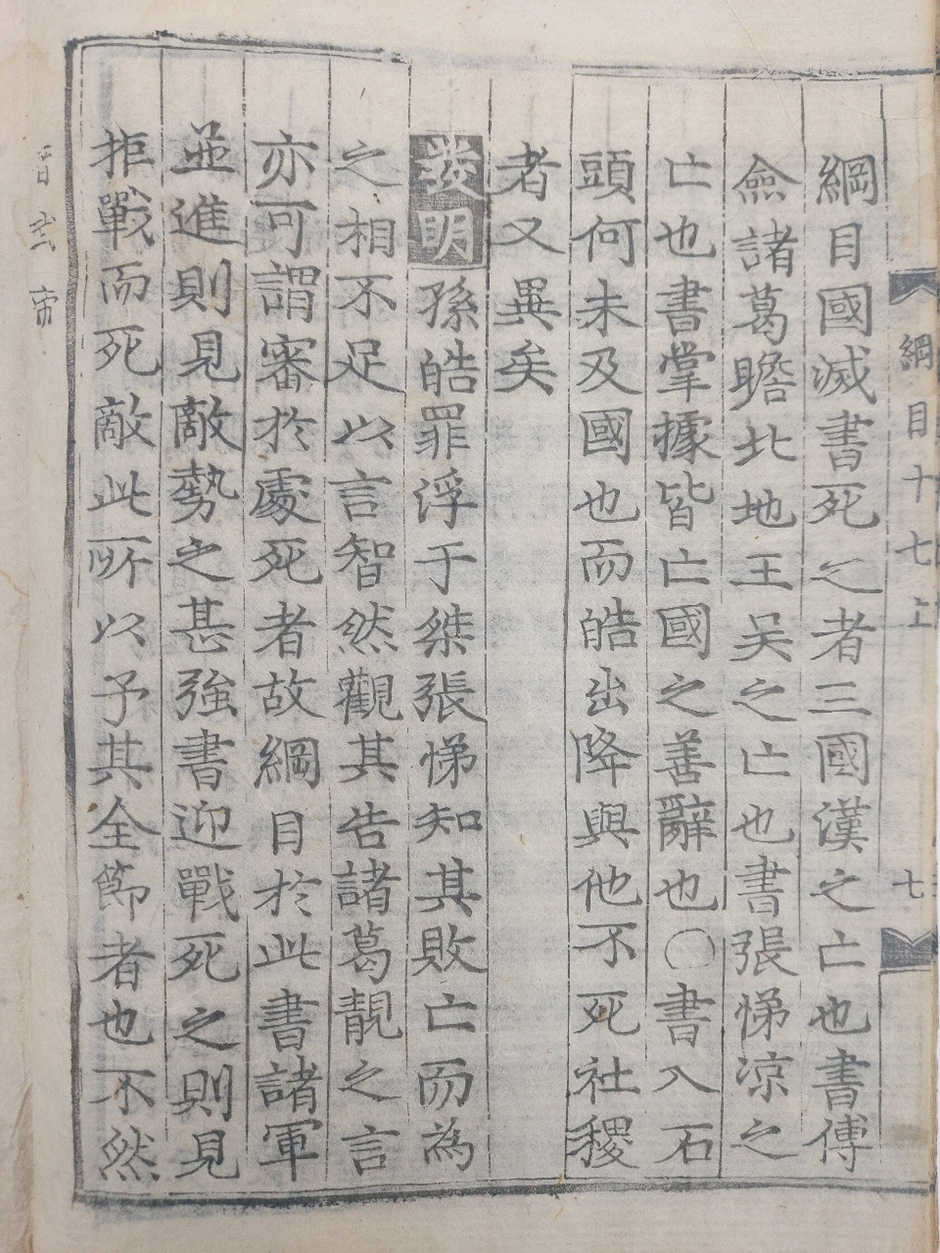 綱目十七上
七
綱目國滅書死之者三國漢之亡也書傅
僉諸葛瞻北地王吴之亡也書張悌凉之
亡也書掌據皆亡國之善辭也〇書入石
頭何未及國也而皓出降與他不死社稷
者又異矣
發明孫皓罪浮于桀張悌知其敗亡而為
之相不足以言智然觀其告諸葛靚之言
亦可謂審於處死者故綱目於此書諸軍
並進則見敵勢之甚強書迎戰死之則見
拒戰而死敵此所以予其全節者也不然
晋武帝